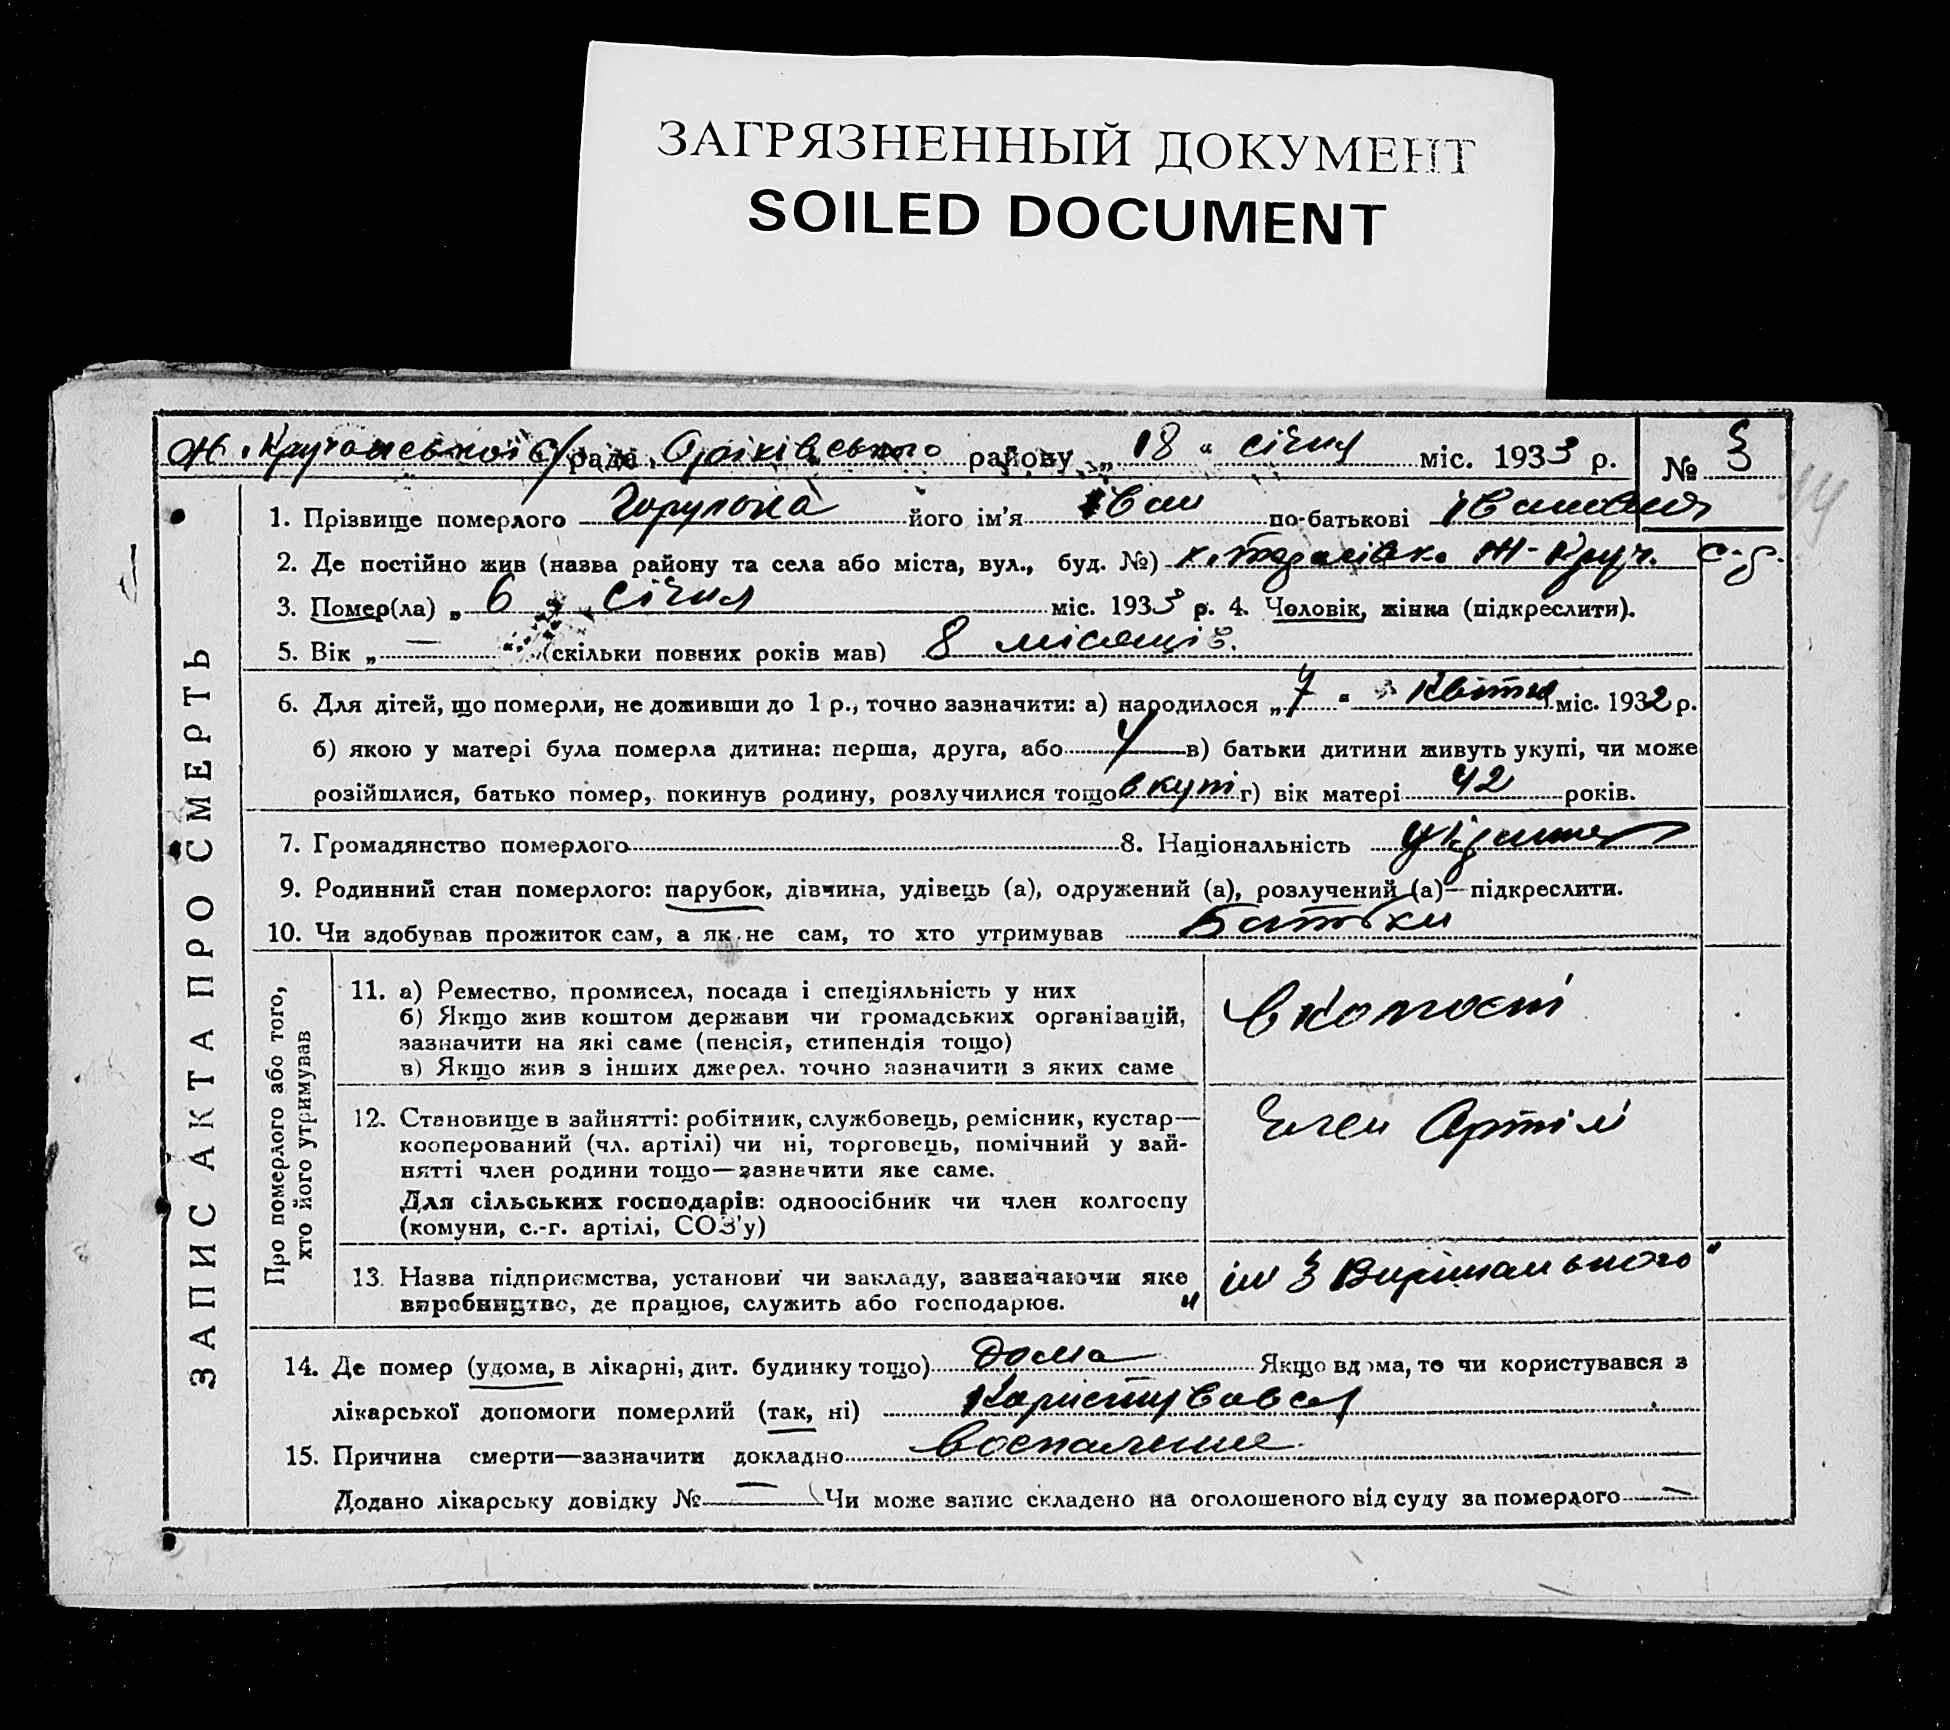 ЗАГРЯЗНЕННЫЙ ДОКУМЕНТ
SOILED DOCUMENT
Ж. Кручанської с/рада, Оріківського району „18“ січня міс. 1933 р. № 3
1. Прізвище померлого його ім’я Іван по-батькові Іванович
2. Де постійно жив (назва району та села або міста, вул., буд. №) Ж-Круч. с-р.
3. Помер(ла) „6 січня міс. 1933 р. 4. Чоловік, жінка (підкреслити).
5. Вік „— (скільки повних років мав) 8 місяців.
6. Для дітей, що померли, не доживши до 1 р., точно зазначити: а) народилося „7“ Квітня міс. 1932 р.
б) якою у матері була померла дитина: перша, друга, або 4 в) батьки дитини живуть укупі, чи може
розійшлися, батько помер, покинув родину, розлучилися тощо вкупі г) вік матері 42 років.
7. Громадянство померлого 8. Національність
9. Родинний стан померлого: парубок, дівчина, удівець (а), одружений (а), розлучений (а)—підкреслити.
10. Чи здобував прожиток сам, а як не сам, то хто утримував Батьки
ЗАПИС АКТА ПРО СМЕРТЬ
Про померлого або того,
хто його утримував
11. а) Ремество, промисел, посада і спеціяльність у них
б) Якщо жив коштом держави чи громадських організацій,
зазначити на які саме (пенсія, стипендія тощо)
в) Якщо жив з інших джерел. точно зазначити з яких саме
в колгоспі
12. Становище в зайнятті: робітник, службовець, ремісник, кустар—
кооперований (чл. артілі) чи ні, торговець, помічний у зай-
нятті член родини тощо—зазначити яке саме.
Для сільських господарів: одноосібник чи член колгоспу
(комуни, с.-г. артілі, СОЗ’у)
Член Артілі
13. Назва підприємства, установи чи закладу, зазначаючи яке
виробництво, де працює, служить або господарює.
„ім
14. Де помер (удома, в лікарні, дит. будинку тощо) дома Якщо вдома, то чи користувався з
лікарської допомоги померлий (так, ні) Користувався
15. Причина смерти—зазначити докладно воспаление
Додано лікарську довідку № — Чи може запис складено на оголошеного від суду за померлого —